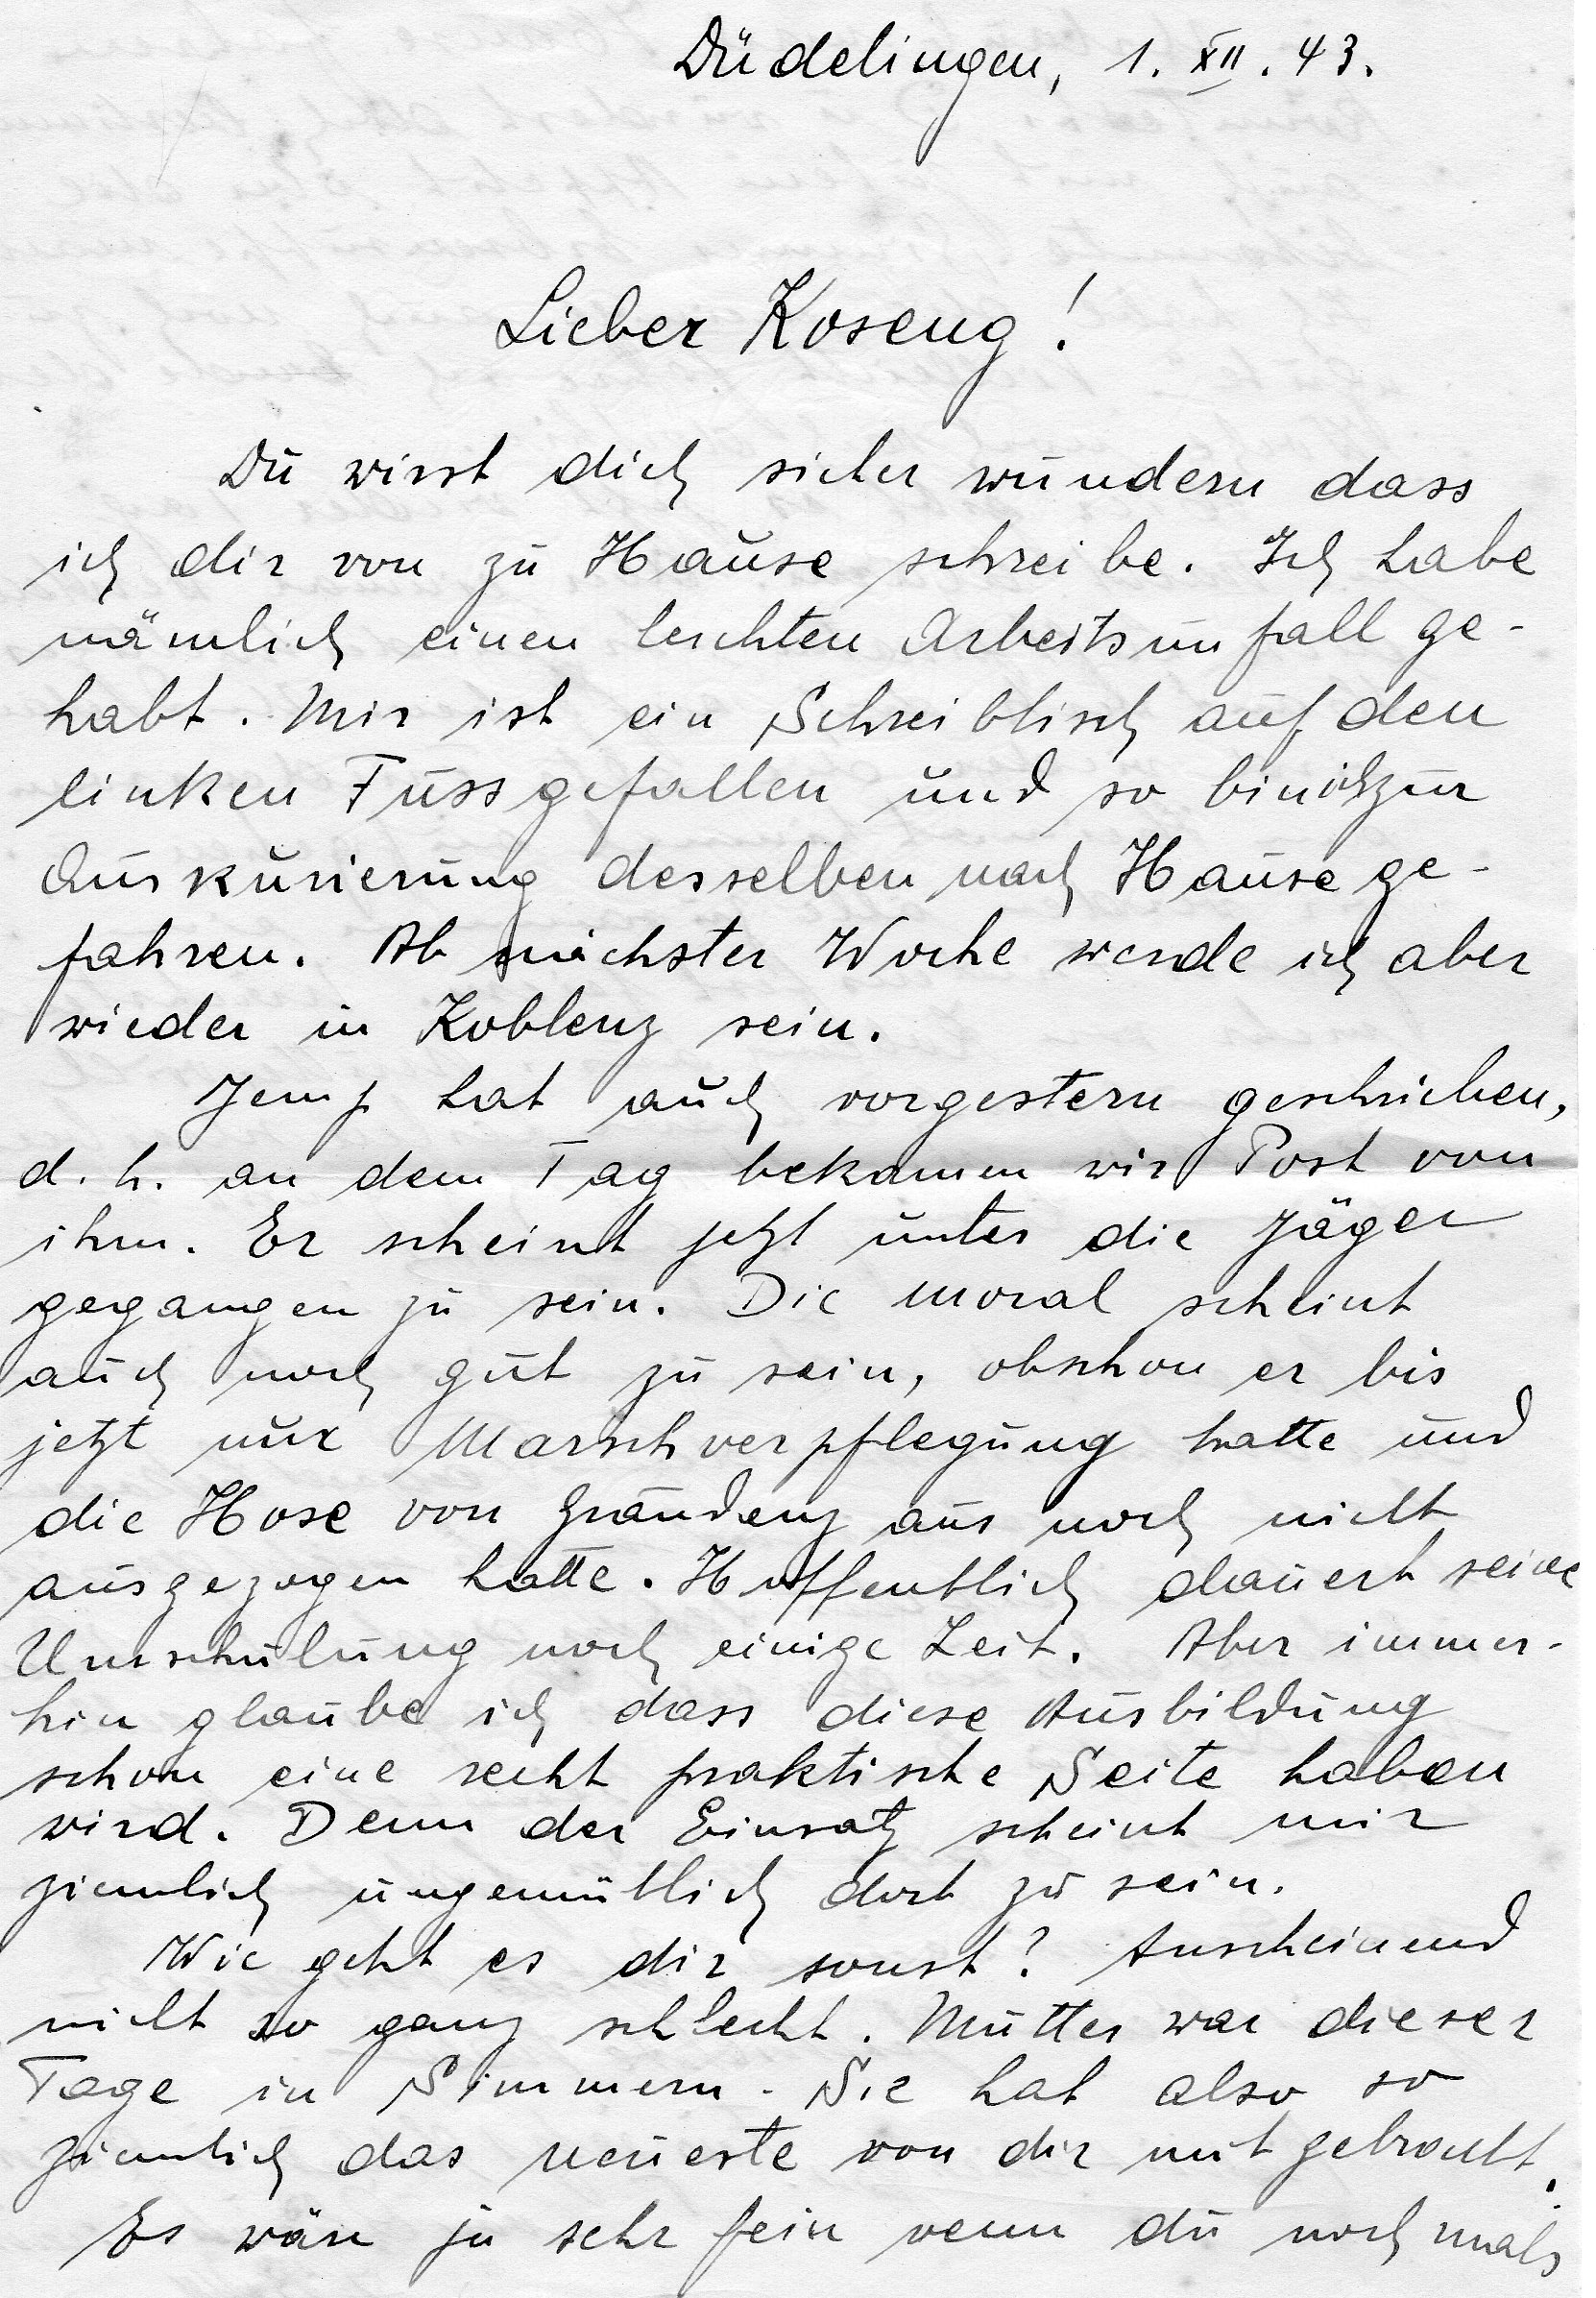 Düdelingen, 1. XII. 43.
Lieber Koseng!
Du wirst dich sicher wundern dass
ich dir von zu Hause schreibe. Ich habe
nämlich einen leichten Arbeitsunfall ge-
habt. Mir ist ein Schreibtisch auf den
linken Fuss gefallen und so bin ich zur
Auskurierung desselben nach Hause ge-
fahren. Ab nächster Woche werde ich aber
wieder in Koblenz sein.
Jemp hat auch vorgestern geschrieben,
d. h. an dem Tag bekamen wir Post von
ihm. Er scheint jetzt unter die Jäger
gegangen zu sein. Die Moral scheint
auch noch gut zu sein, obschon er bis
jetzt nur Marschverpflegung hatte und
die Hose von Graudenz aus noch nicht
ausgezogen hatte. Hoffentlich dauert seine
Umschulung noch einige Zeit. Aber immer-
hin glaube ich dass diese Ausbildung
schon eine recht praktische Seite haben
wird. Denn der Einsatz scheint mir
ziemlich ungemütlich dort zu sein.
Wie geht es dir sonst? Anscheinend
nicht so ganz schlecht. Mutter war dieser
Tage in Simmern. Sie hat also so
ziemlich das neueste von dir mitgebracht.
Es wäre ja sehr fein wenn du nochmals